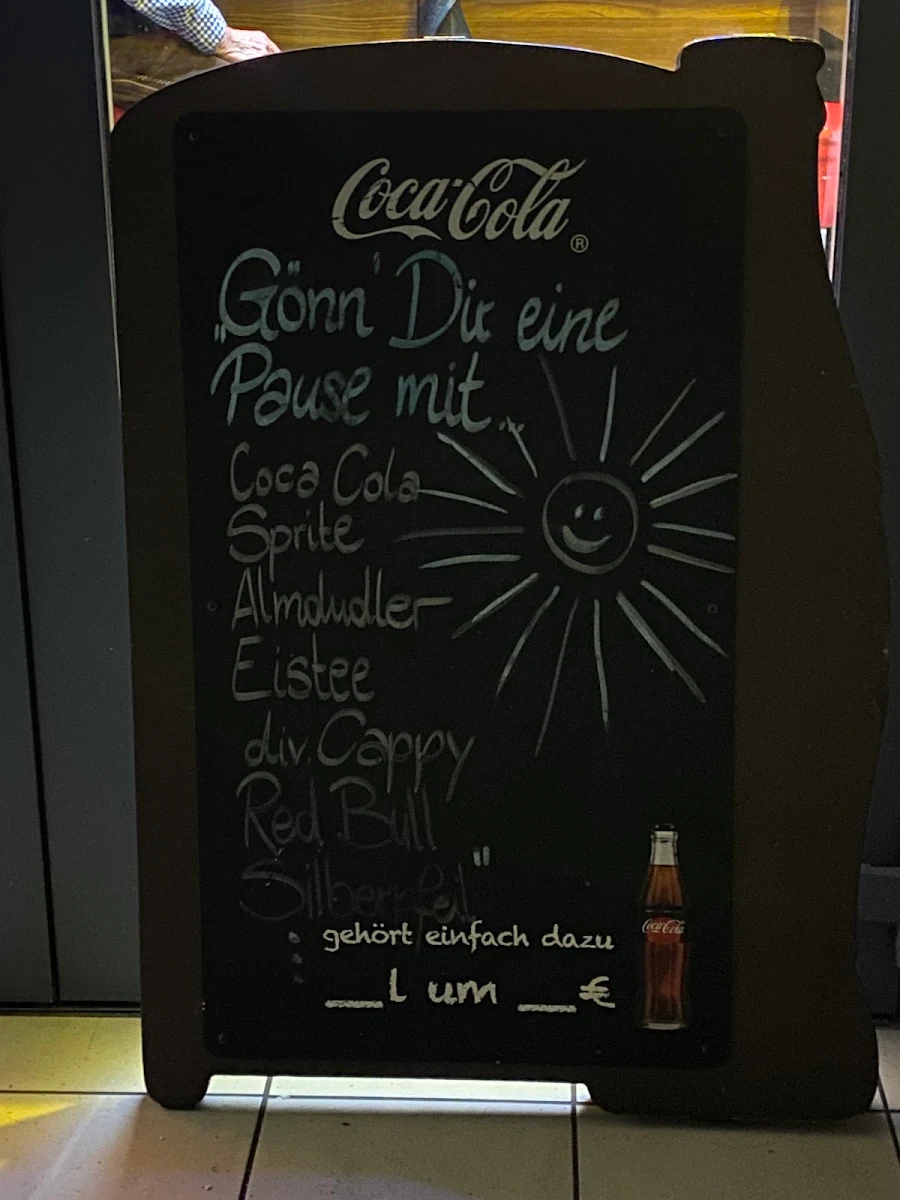 Coca-Cola®
„Gönn' Dir eine
Pause mit...
Coca Cola
Sprite
Almdudler
Eistee
div. Cappy
Red Bull
Silberpfeil"
gehört einfach dazu
___l um ___€
Coca-Cola